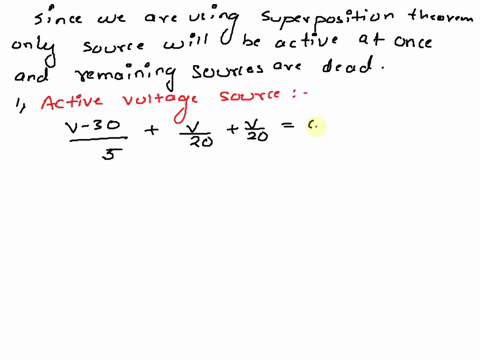 since we are using superposition theorem
only source will be active at once
and remaining sources are dead.
1, Active voltage source :-
V-30/5 + V/20 + V/20 = 0